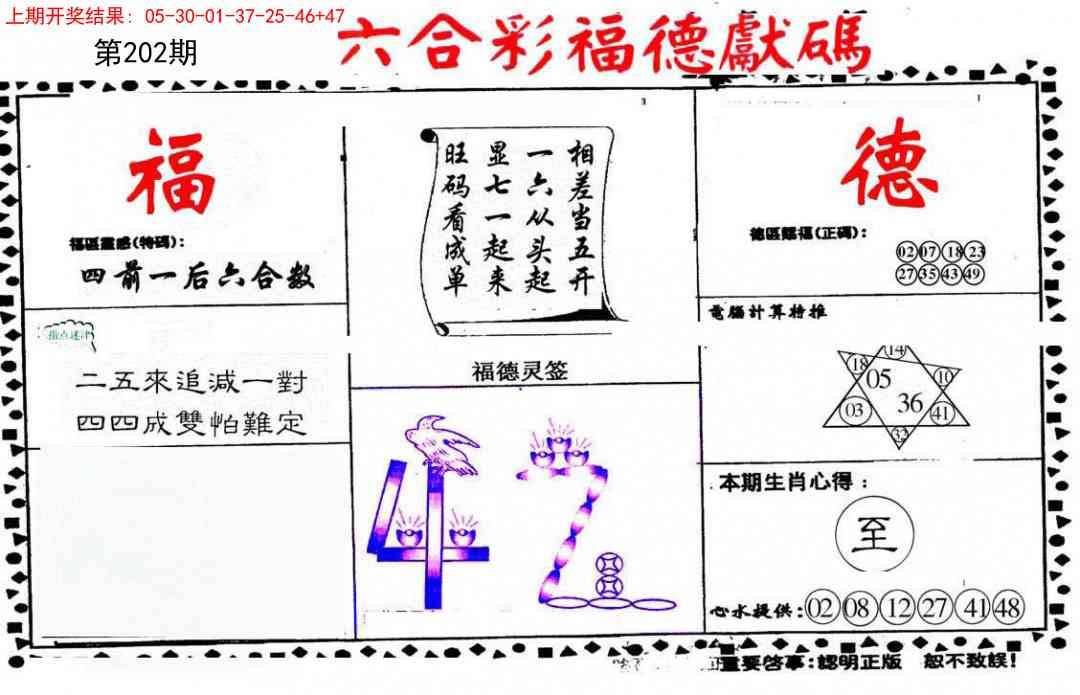 上期开奖结果：05-30-01-37-25-46+47
第202期
六合彩福德獻碼
福
福區靈感(特碼)：
四前一后六合数
指点迷津
二五來追減一對
四四成雙怕難定
相差当五开
一六从头起
显七一起来
旺码看成单
福德灵签
德
德區賜福(正碼)：
02 07 18 23
27 35 43 49
電腦計算特推
14
18 05 10
03 36 41
32
本期生肖心得：
至
心水提供：02 08 12 27 41 48
重要啓事：認明正版 恕不致誤！